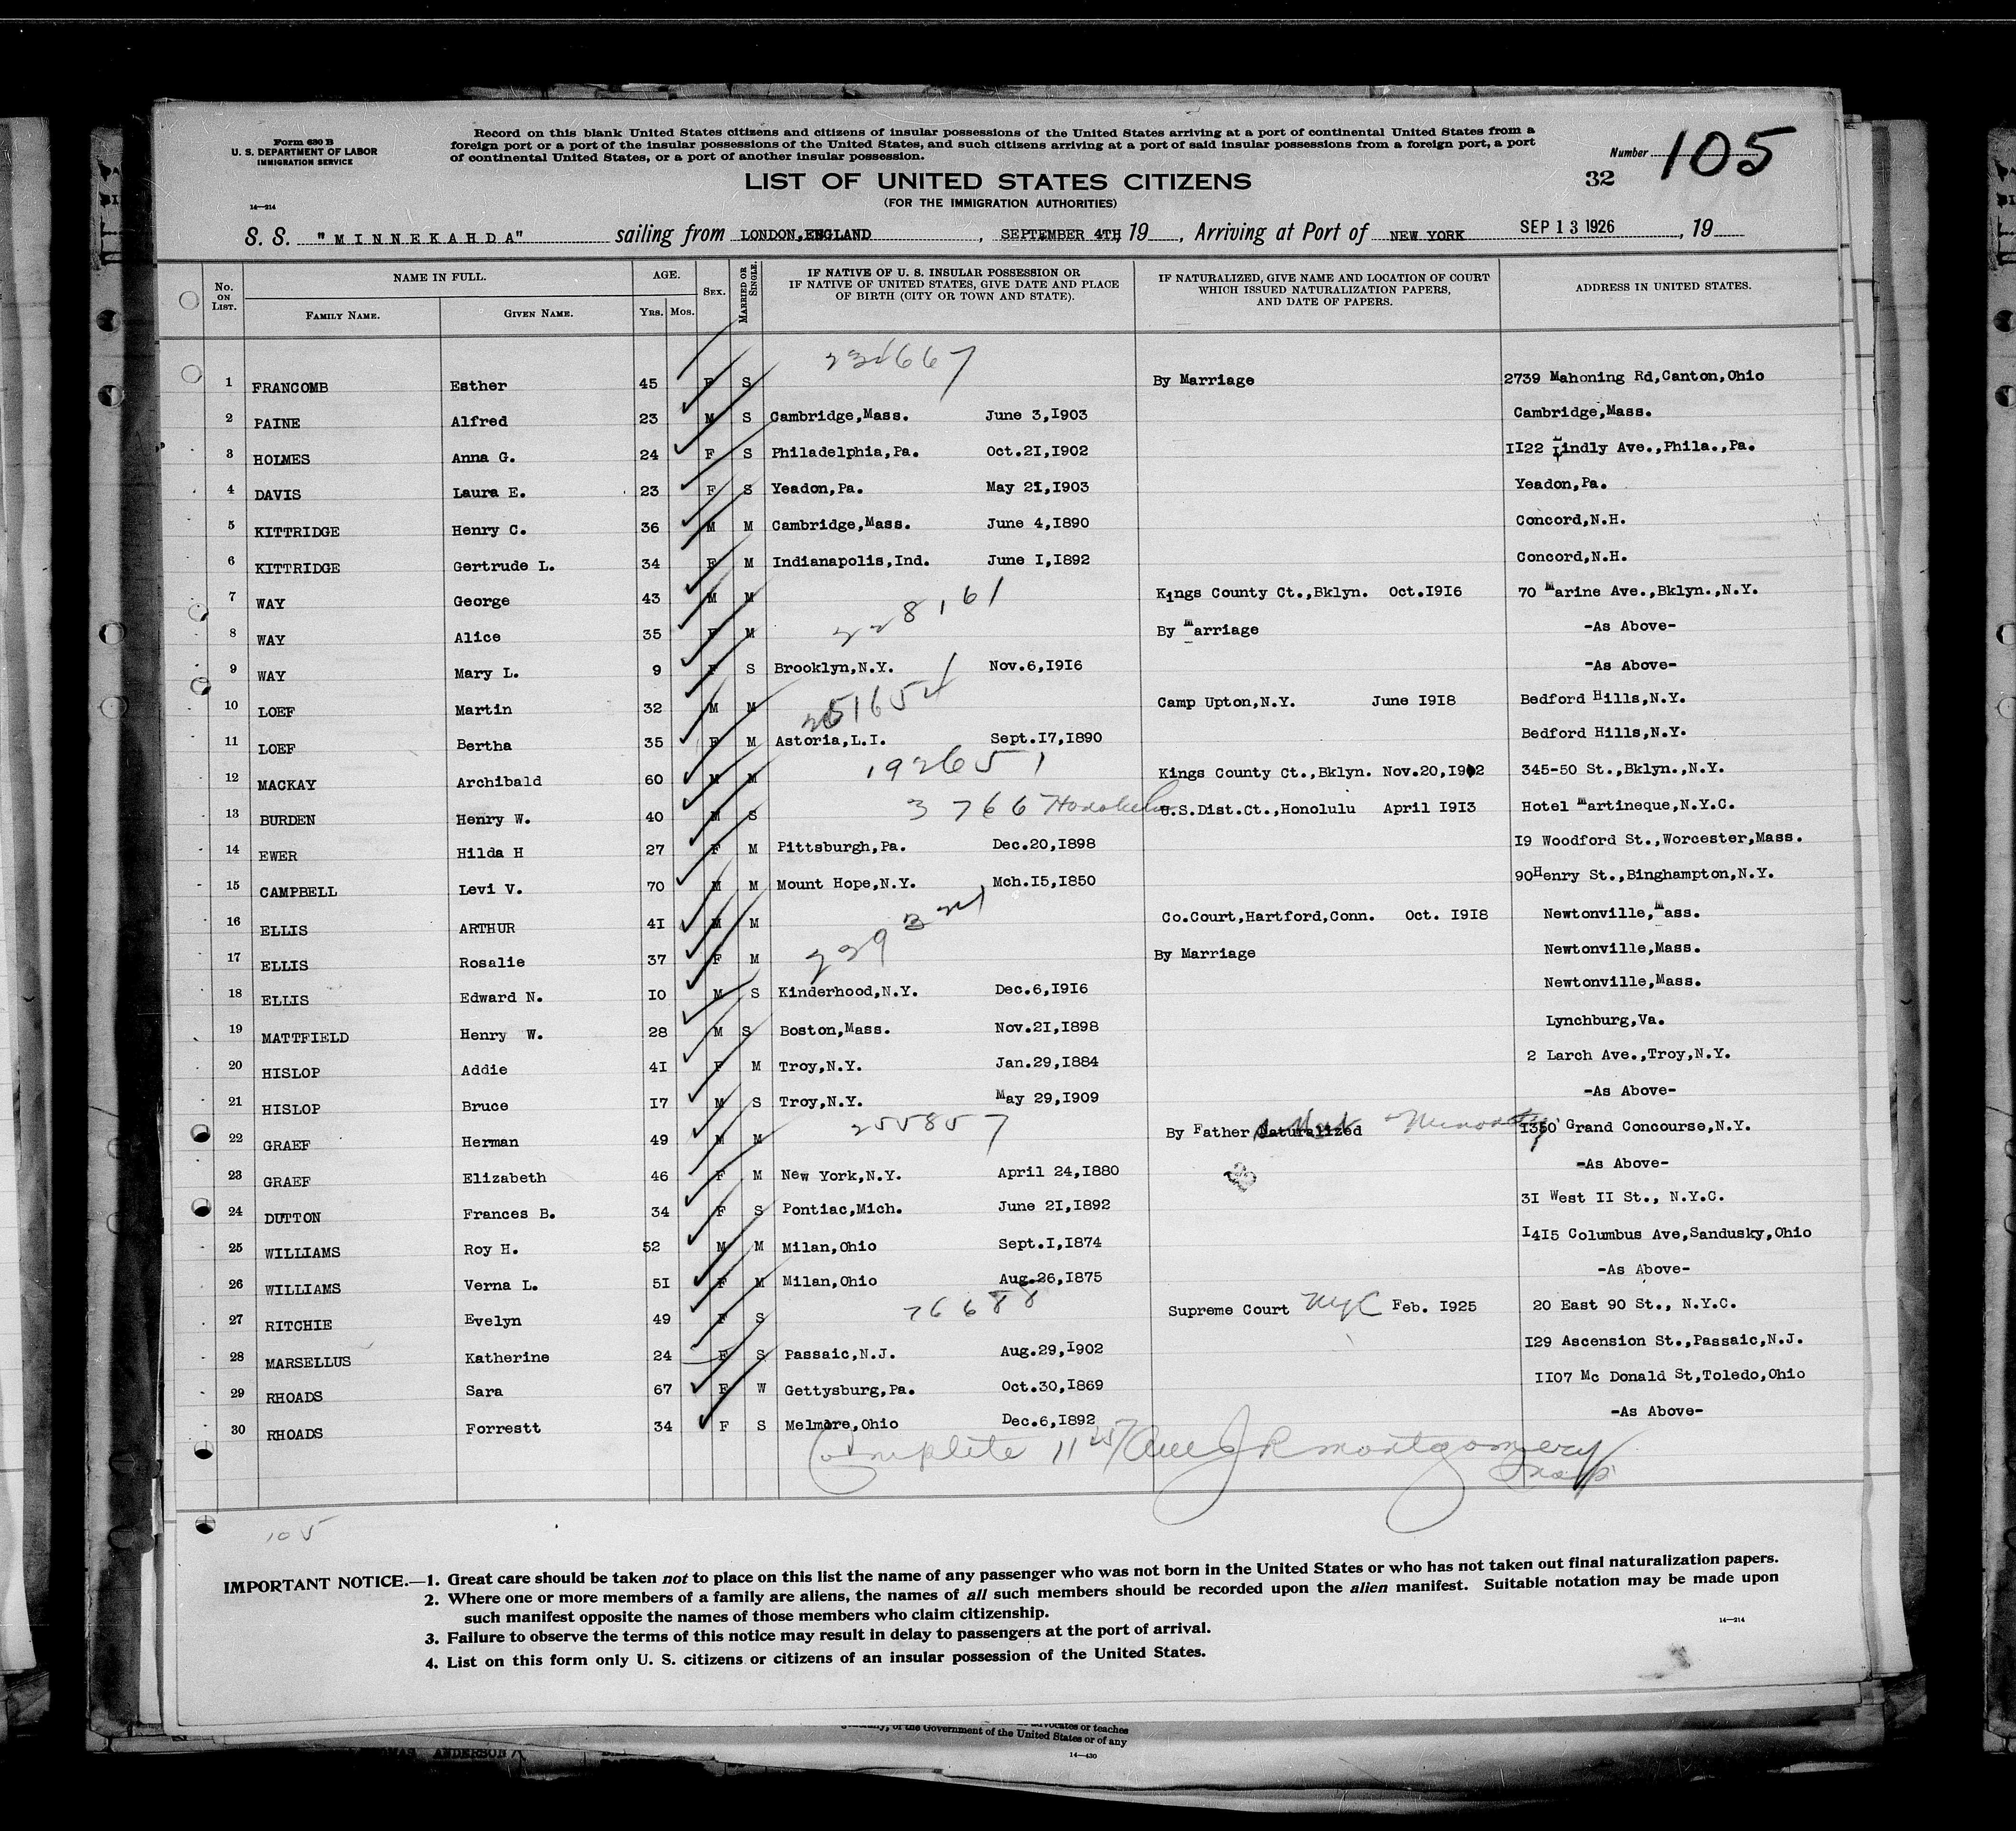 Form 630 B
U. S. DEPARTMENT OF LABOR
IMMIGRATION SERVICE
14—214
Record on this blank United States citizens and citizens of insular possessions of the United States arriving at a port of continental United States from a
foreign port or a port of the insular possessions of the United States, and such citizens arriving at a port of said insular possessions from a foreign port, a port
of continental United States, or a port of another insular possession.
Number 105
32
LIST OF UNITED STATES CITIZENS
(FOR THE IMMIGRATION AUTHORITIES)
S. S. "MINNEKAHDA" sailing from LONDON,ENGLAND , SEPTEMBER 4TH, 19 , Arriving at Port of NEW YORK SEP 13 1926 , 19
No. ON LIST. NAME IN FULL. FAMILY NAME. GIVEN NAME. AGE. YRS. MOS. SEX. MARRIED OR SINGLE. IF NATIVE OF U. S. INSULAR POSSESSION OR IF NATIVE OF UNITED STATES, GIVE DATE AND PLACE OF BIRTH (CITY OR TOWN AND STATE). IF NATURALIZED, GIVE NAME AND LOCATION OF COURT WHICH ISSUED NATURALIZATION PAPERS, AND DATE OF PAPERS. ADDRESS IN UNITED STATES.
1 FRANCOMB Esther 45 F S By Marriage 2739 Mahoning Rd,Canton,Ohio
2 PAINE Alfred 23 M S Cambridge,Mass. June 3,I903 Cambridge,Mass.
3 HOLMES Anna G. 24 F S Philadelphia,Pa. Oct.2I,I902 II22 Lindly Ave.,Phila.,Pa.
4 DAVIS Laura E. 23 F S Yeadon,Pa. May 2I,I903 Yeadon,Pa.
5 KITTRIDGE Henry C. 36 M M Cambridge,Mass. June 4,I890 Concord,N.H.
6 KITTRIDGE Gertrude L. 34 F M Indianapolis,Ind. June I,I892 Concord,N.H.
7 WAY George 43 M M Kings County Ct.,Bklyn. Oct.I9I6 70 Marine Ave.,Bklyn.,N.Y.
8 WAY Alice 35 F M 228161 By Marriage -As Above-
9 WAY Mary L. 9 F S Brooklyn,N.Y. Nov.6,I9I6 -As Above-
10 LOEF Martin 32 M M Camp Upton,N.Y. June I9I8 Bedford Hills,N.Y.
11 LOEF Bertha 35 F M Astoria,L.I. Sept.I7,I890 Bedford Hills,N.Y.
12 MACKAY Archibald 60 M M 192651 Kings County Ct.,Bklyn. Nov.20,I902 345-50 St.,Bklyn.,N.Y.
13 BURDEN Henry W. 40 M S 3766 Honolulu U.S.Dist.Ct.,Honolulu April I9I3 Hotel Martineque,N.Y.C.
14 EWER Hilda H 27 F M Pittsburgh,Pa. Dec.20,I898 I9 Woodford St.,Worcester,Mass.
15 CAMPBELL Levi V. 70 M M Mount Hope,N.Y. Mch.I5,I850 90Henry St.,Binghampton,N.Y.
16 ELLIS ARTHUR 4I M M Co.Court,Hartford,Conn. Oct. I9I8 Newtonville,Mass.
17 ELLIS Rosalie 37 F M By Marriage Newtonville,Mass.
18 ELLIS Edward N. I0 M S Kinderhood,N.Y. Dec.6,I9I6 Newtonville,Mass.
19 MATTFIELD Henry W. 28 M S Boston,Mass. Nov.2I,I898 Lynchburg,Va.
20 HISLOP Addie 4I F M Troy,N.Y. Jan.29,I884 2 Larch Ave.,Troy,N.Y.
21 HISLOP Bruce I7 M S Troy,N.Y. May 29,I909 -As Above-
22 GRAEF Herman 49 M M 255857 By Father Naturalized I350 Grand Concourse,N.Y.
23 GRAEF Elizabeth 46 F M New York,N.Y. April 24,I880 -As Above-
24 DUTTON Frances B. 34 F S Pontiac,Mich. June 2I,I892 3I West II St., N.Y.C.
25 WILLIAMS Roy H. 52 M M Milan,Ohio Sept.I,I874 I4I5 Columbus Ave,Sandusky,Ohio
26 WILLIAMS Verna L. 5I F M Milan,Ohio Aug.26,I875 -As Above-
27 RITCHIE Evelyn 49 F S 76688 Supreme Court NYC Feb. I925 20 East 90 St., N.Y.C.
28 MARSELLUS Katherine 24 F S Passaic,N.J. Aug.29,I902 I29 Ascension St.,Passaic,N.J.
29 RHOADS Sara 67 F W Gettysburg,Pa. Oct.30,I869 II07 Mc Donald St,Toledo,Ohio
30 RHOADS Forrestt 34 F S Melmore,Ohio Dec.6,I892 -As Above-
Complete 11 J R Montgomery
105
IMPORTANT NOTICE.—1. Great care should be taken not to place on this list the name of any passenger who was not born in the United States or who has not taken out final naturalization papers.
2. Where one or more members of a family are aliens, the names of all such members should be recorded upon the alien manifest. Suitable notation may be made upon
such manifest opposite the names of those members who claim citizenship.
3. Failure to observe the terms of this notice may result in delay to passengers at the port of arrival.
4. List on this form only U. S. citizens or citizens of an insular possession of the United States.
14—214
advocates or teaches
of the Government of the United States or of any
14—430
ANDERSON